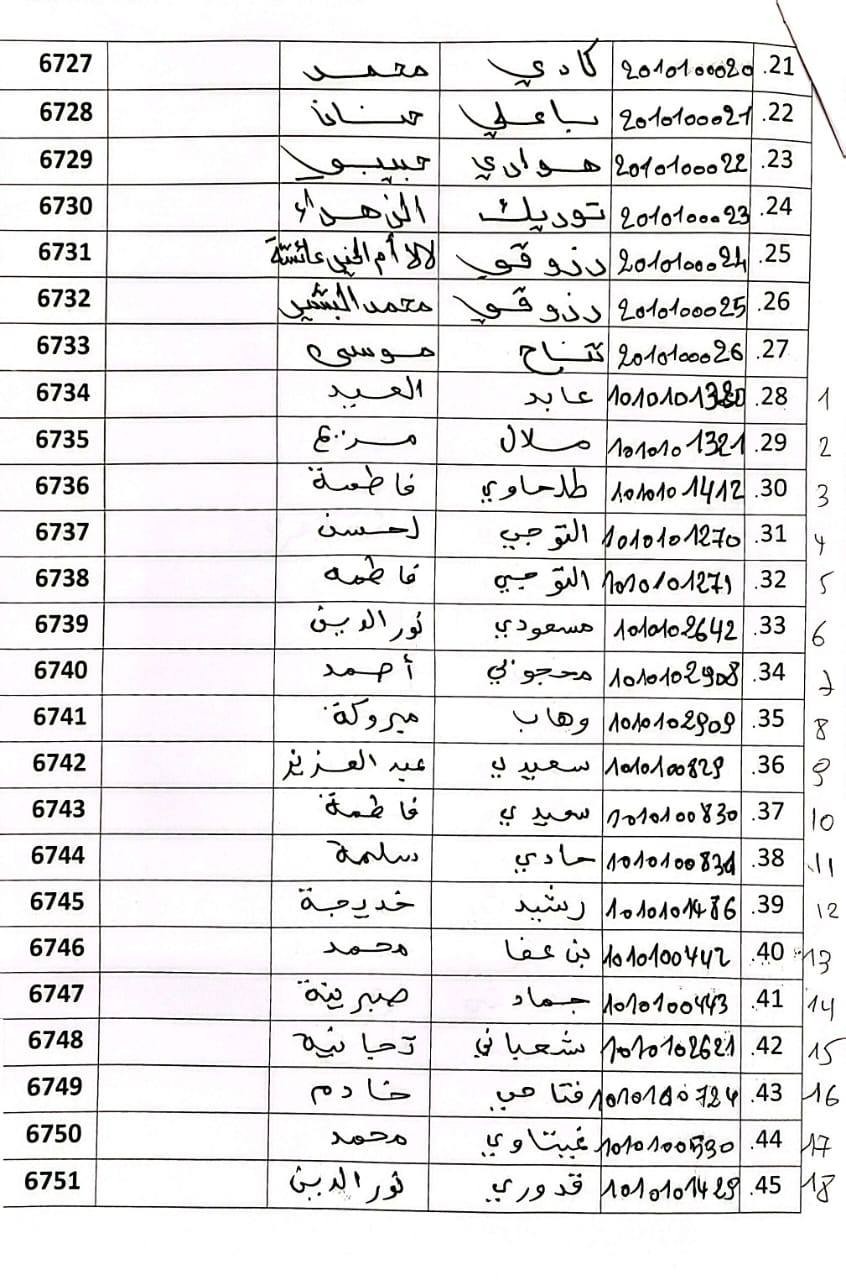 .21 2010100020 كادي محمد 6727
.22 2010100021 باعلي حسان 6728
.23 2010100022 هواري حبيبي 6729
.24 2010100023 توريك الزهراء 6730
.25 2010100024 رزوقي لالا أم الخير عائشة 6731
.26 2010100025 رزوقي محمد البشير 6732
.27 2010100026 نتاح موسى 6733
.28 1010101320 عابد العيد 6734 1
.29 1010101321 ملال مريم 6735 2
.30 1010101412 طلحاوي فاطمة 6736 3
.31 1010101270 التوجي لحسن 6737 4
.32 1010101271 التوجي فاطمه 6738 5
.33 1010102642 مسعودي نور الدين 6739 6
.34 1010102908 محجوبي أحمد 6740 7
.35 1010102909 وهاب مبروكة 6741 8
.36 1010100829 سعيدي عبد العزيز 6742 9
.37 1010100830 سعيدي فاطمة 6743 10
.38 1010100831 حادي سليمة 6744 11
.39 1010101486 رشيد خديجة 6745 12
.40 1010100442 بن عفا محمد 6746 13
.41 1010100443 جماد صبرينة 6747 14
.42 1010102621 شعباني 6748 15
.43 1010100724 فتاحي خادم 6749 16
.44 1010100530 غيتاوي محمد 6750 17
.45 1010101429 قدوري نور الدين 6751 18